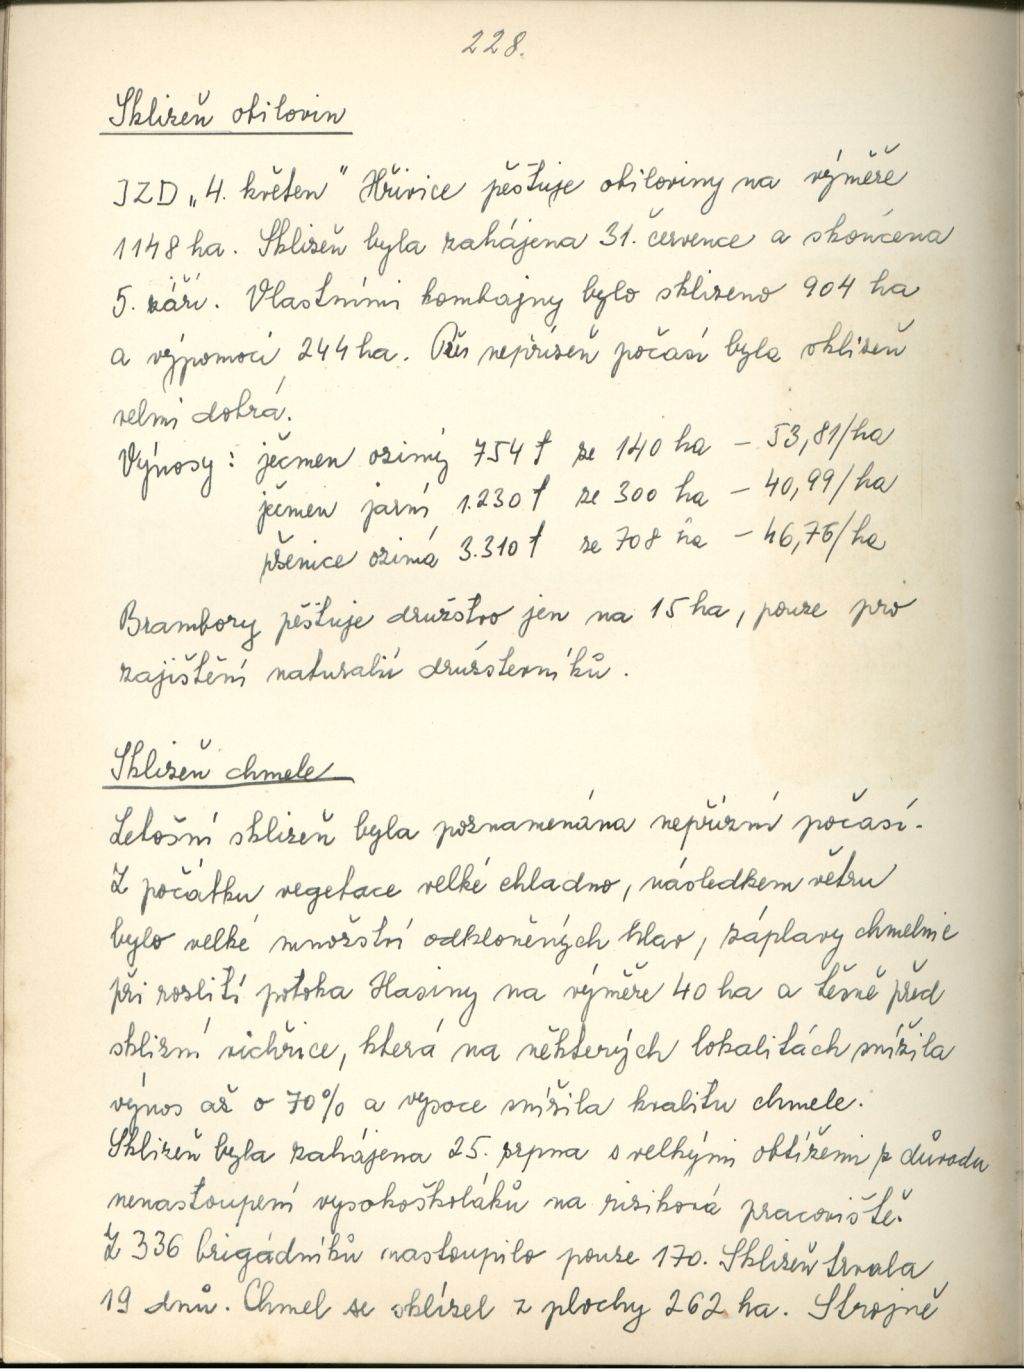 228.
Sklizeň obilovin
JZD „4. květen" Hřivice pěstuje obiloviny na výměře
1148 ha. Sklizeň byla zahájena 31. července a skončena
5. září. Vlastními kombajny bylo sklizeno 904 ha
a výpomocí 244 ha. Přes nepřízeň počasí byla sklizeň
velmi dobrá.
Výnosy: ječmen ozimý 754 t ze 140 ha – 53,81/ha
ječmen jarní 1.230 t ze 300 ha – 40,99/ha
pšenice ozimá 3.310 t ze 708 ha – 46,76/ha
Brambory pěstuje družstvo jen na 15 ha, pouze pro
zajištění naturalií družstevníků.
Sklizeň chmele
Letošní sklizeň byla poznamenána nepřízní počasí.
Z počátku vegetace velké chladno, následkem větru
bylo velké množství odkloněných hlav, záplavy chmelnic
při rozlití potoka Hasiny na výměře 40 ha a těsně před
sklizní vichřice, která na některých lokalitách snížila
výnos až o 70% a vysoce snížila kvalitu chmele.
Sklizeň byla zahájena 25. srpna s velkými obtížemi z důvodu
nenastoupení vysokoškoláků na riziková pracoviště.
Z 336 brigádníků nastoupilo pouze 170. Sklizeň trvala
19 dnů. Chmel se sklízel z plochy 262 ha. Strojně